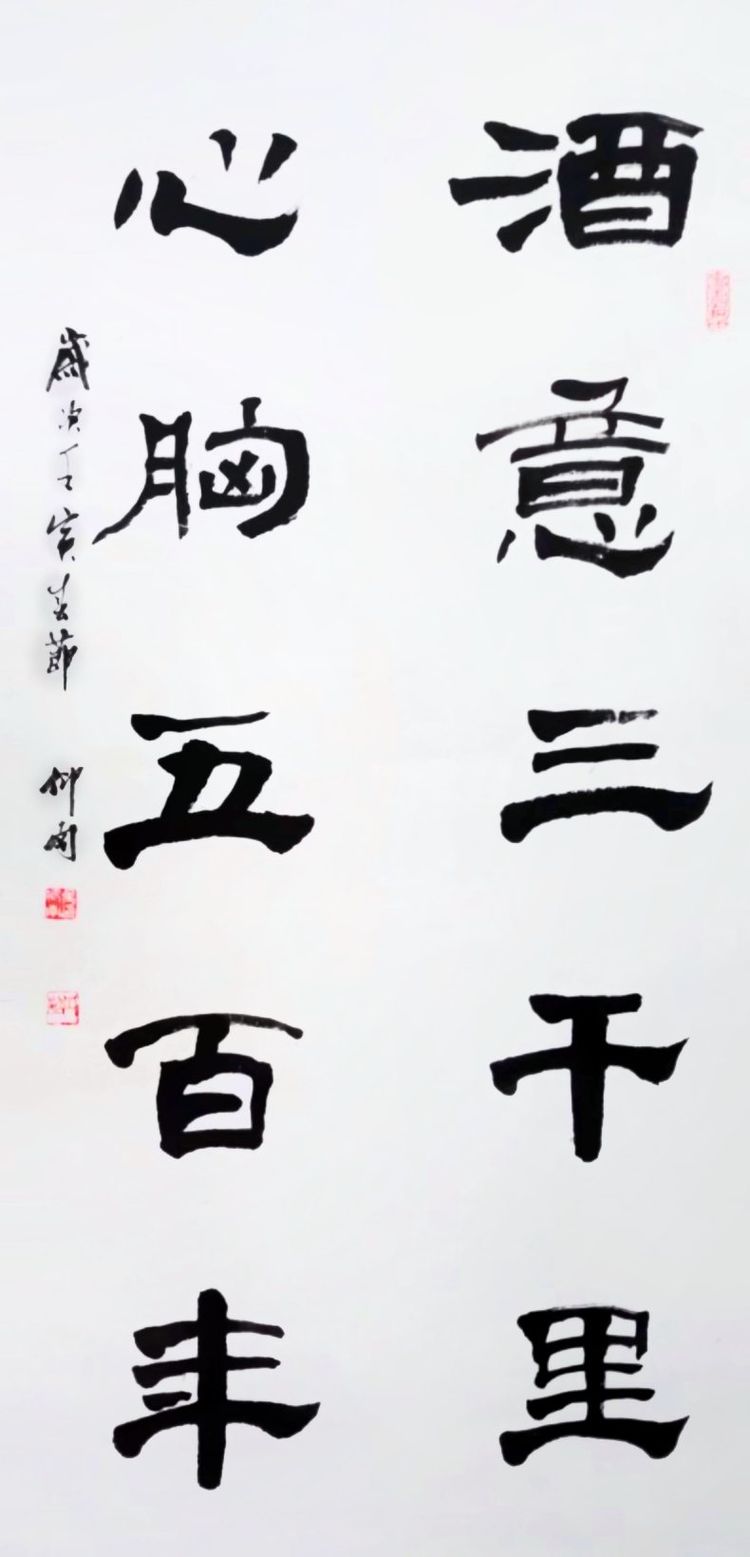 酒意三千里
心胸五百年
歲次壬寅春節 仰雨